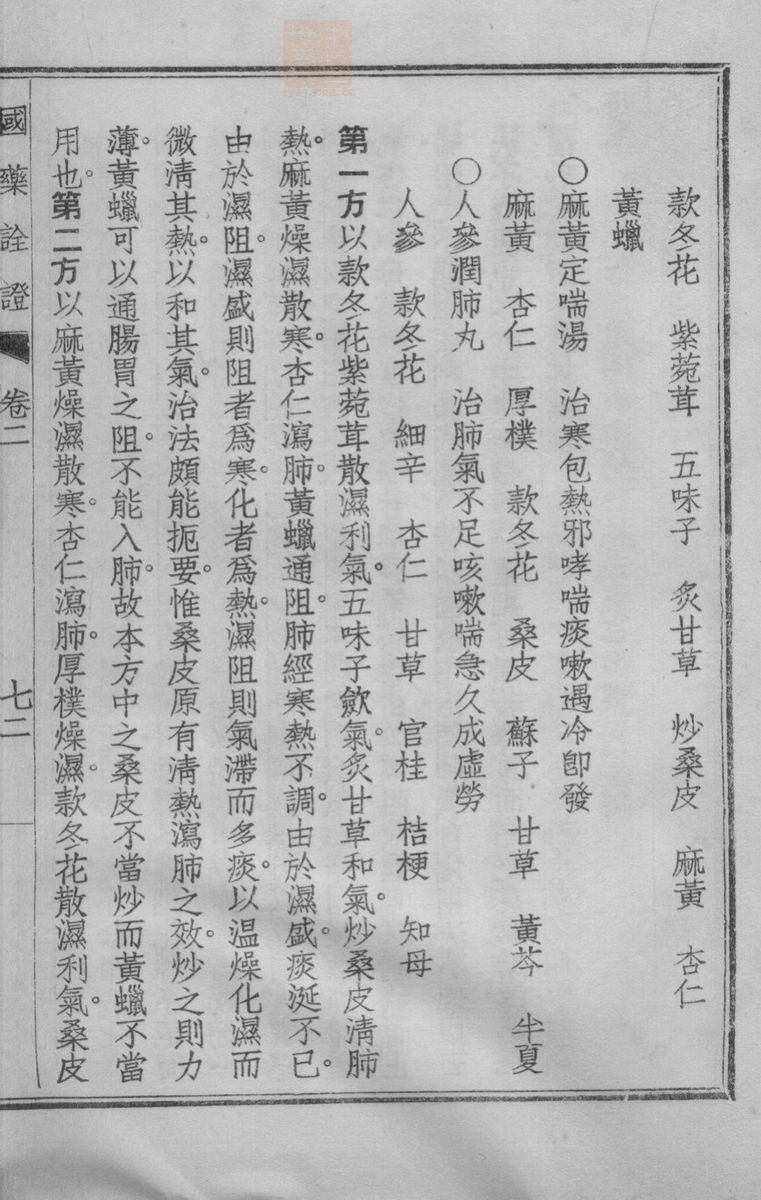 款冬花　紫菀茸　五味子　炙甘草　炒桑皮　麻黃　杏仁
黃蠟
〇麻黃定喘湯　治寒包熱邪哮喘痰嗽遇冷卽發
麻黃　杏仁　厚樸　款冬花　桑皮　蘇子　甘草　黃芩　半夏
〇人參潤肺丸　治肺氣不足咳嗽喘急久成虛勞
人參　款冬花　細辛　杏仁　甘草　官桂　桔梗　知母
第一方以款冬花紫菀茸散濕利氣。五味子歛氣。炙甘草和氣。炒桑皮淸肺
熱。麻黃燥濕散寒。杏仁瀉肺。黃蠟通阻。肺經寒熱不調。由於濕盛。痰涎不已。
由於濕阻。濕盛則阻者爲寒。化者爲熱。濕阻則氣滯而多痰。以温燥化濕而
微淸其熱。以和其氣。治法頗能扼要。惟桑皮原有淸熱瀉肺之效。炒之則力
薄。黃蠟可以通腸胃之阻。不能入肺。故本方中之桑皮不當炒而黃蠟不當
用也。第二方以麻黃燥濕散寒。杏仁瀉肺。厚樸燥濕。款冬花散濕利氣。桑皮
國藥詮證　卷二　七二